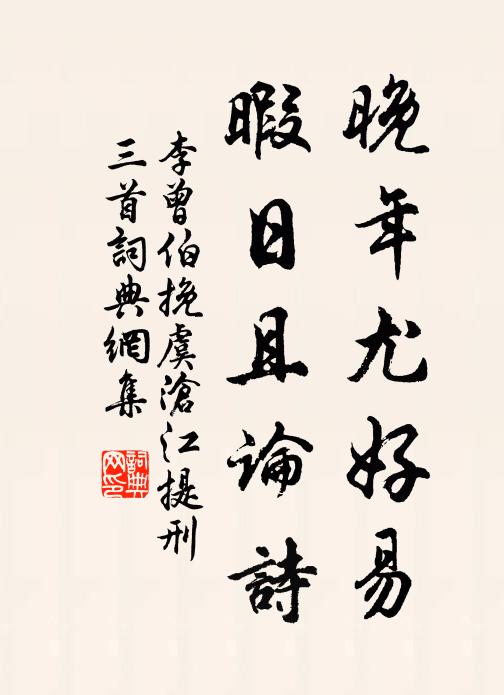 晚年尤好易
暇日且論詩
李曾伯挽虞滄江提刑
三首詞典網集
詞典
网印